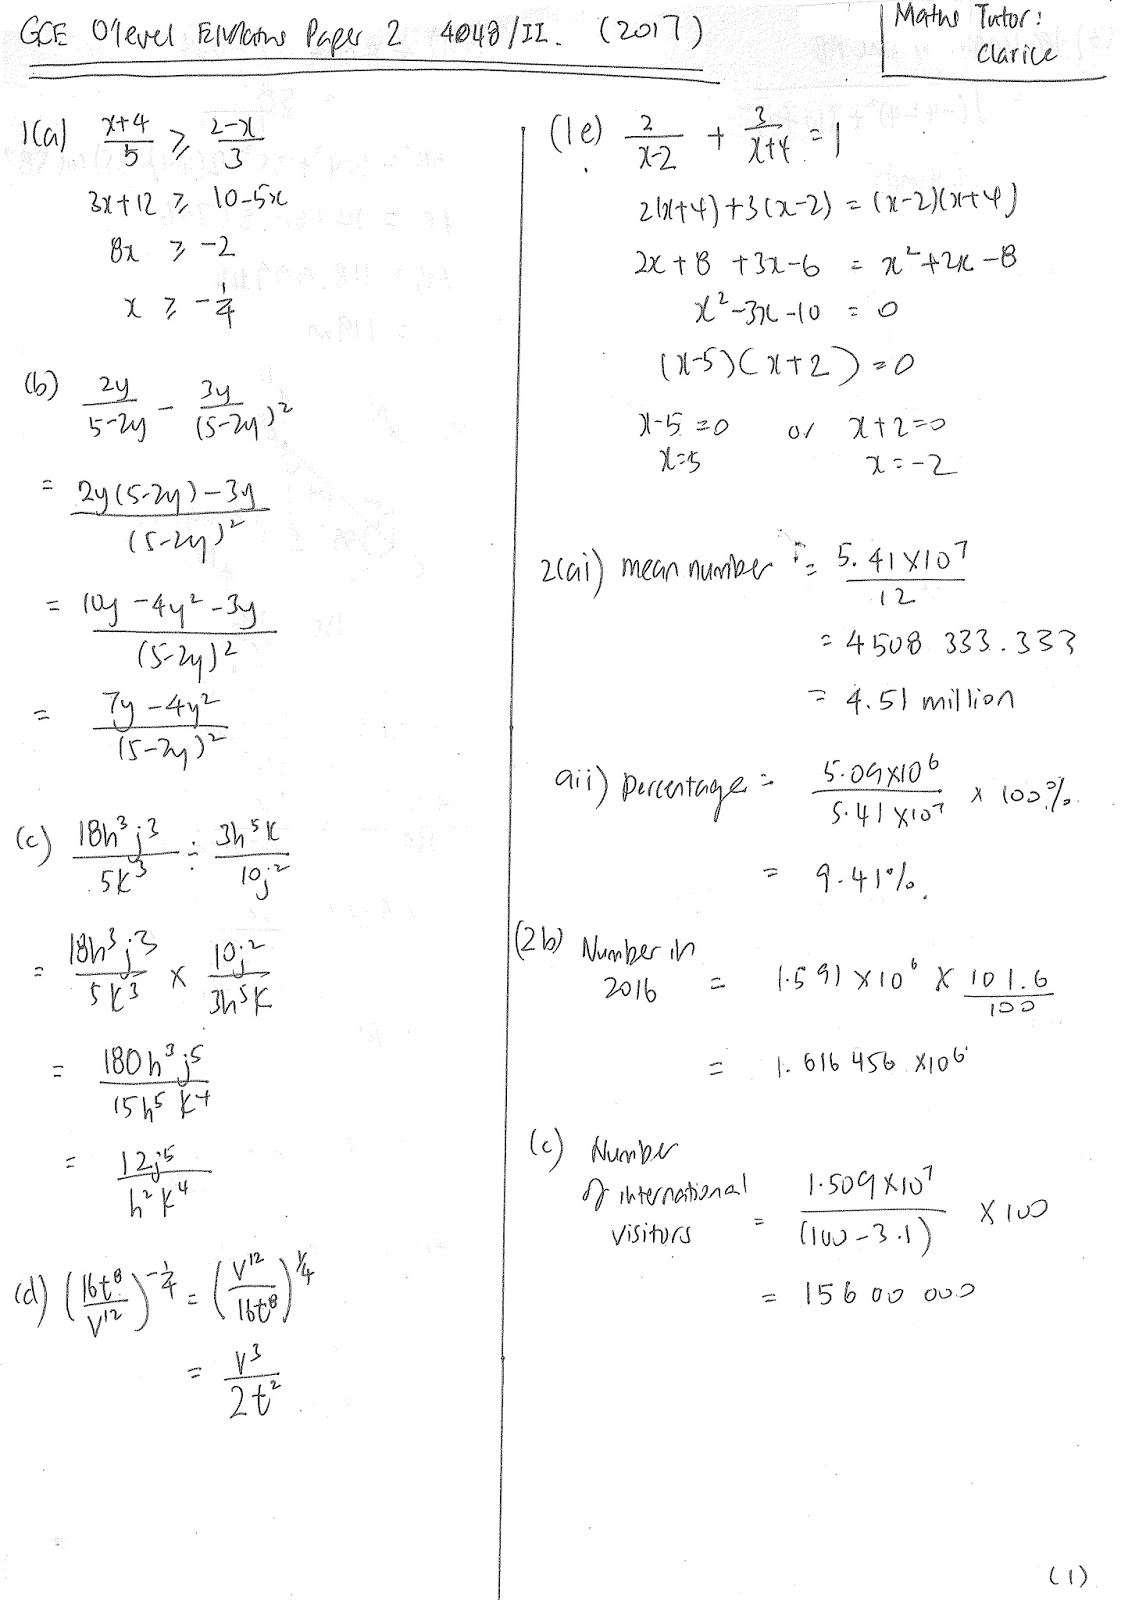 GCE O'level E/Maths Paper 2 4048/II. (2017)
Maths Tutor:
Clarice
1(a) (x+4)/5 ⩾ (2-x)/3
3x+12 ⩾ 10-5x
8x ⩾ -2
x ⩾ -1/4
(b) 2y/(5-2y) - 3y/(5-2y)²
= (2y(5-2y)-3y)/(5-2y)²
= (10y-4y²-3y)/(5-2y)²
= (7y-4y²)/(5-2y)²
(c) 18h³j³/5k³ ÷ 3h⁵k/10j²
= 18h³j³/5k³ × 10j²/3h⁵k
= 180h³j⁵/15h⁵k⁴
= 12j⁵/h²k⁴
(d) (16t⁸/v¹²)^(-1/4) = (v¹²/16t⁸)^(1/4)
= v³/2t²
(1e) 2/(x-2) + 3/(x+4) = 1
2(x+4)+3(x-2) = (x-2)(x+4)
2x+8+3x-6 = x²+2x-8
x²-3x-10 = 0
(x-5)(x+2) = 0
x-5=0 or x+2=0
x=5 x=-2
2(ai) mean number = 5.41×10⁷/12
= 4508 333.333
= 4.51 million
aii) Percentage = 5.09×10⁶/5.41×10⁷ × 100%
= 9.41%.
(2b) Number in
2016 = 1.591×10⁶ × 101.6/100
= 1.616 456 ×10⁶
(c) Number
of international
visitors = 1.509×10⁷/(100-3.1) ×100
= 15600 000
(1)